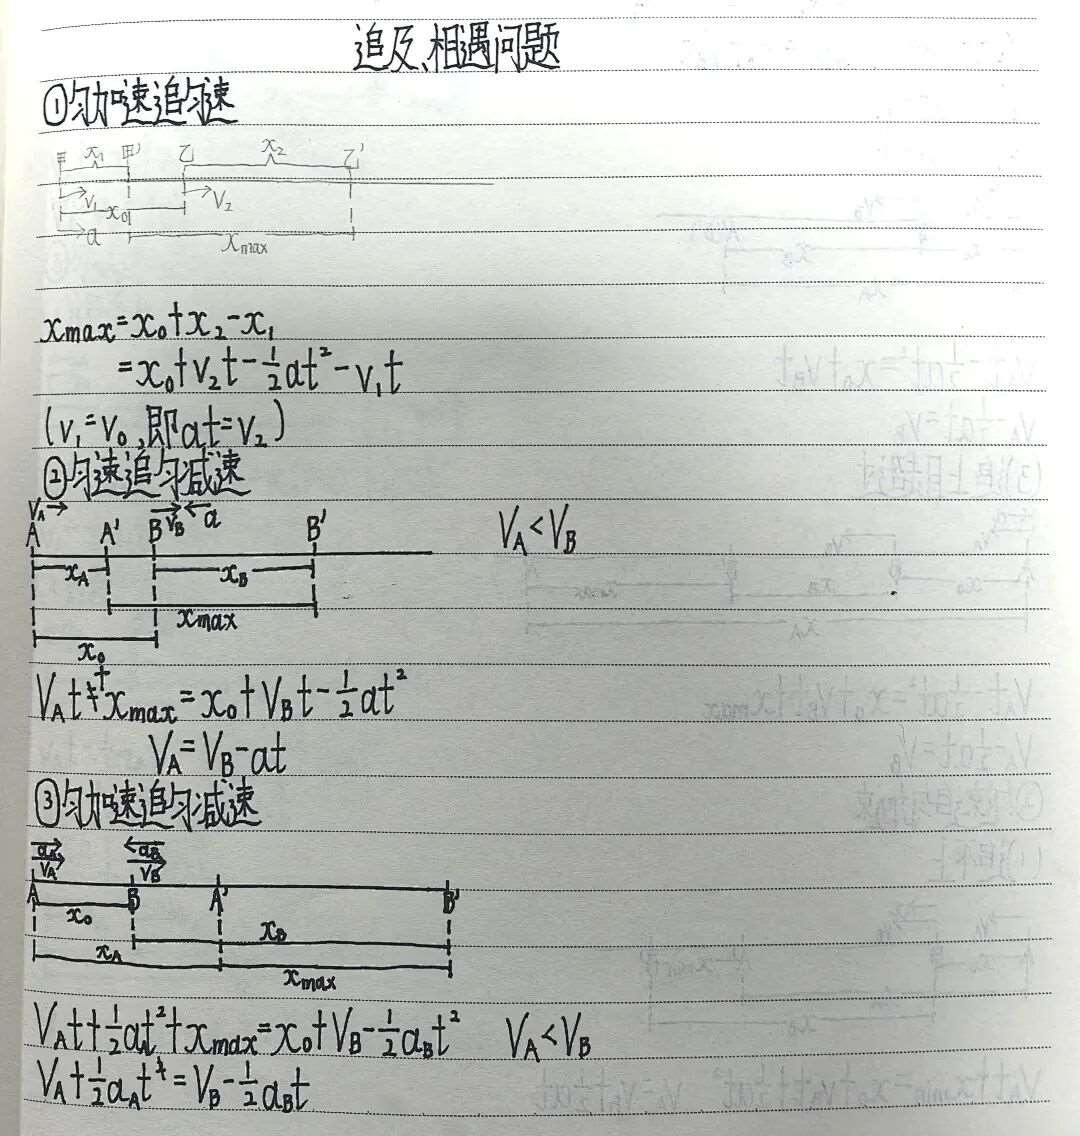 追及、相遇问题
①匀加速追匀速
甲 x₁ 甲' 乙 x₂ 乙'
v₁ v₂
x₀
a xmax
xmax=x₀+x₂-x₁
=x₀+v₂t-½at²-v₁t
(v₁=v₀,即at=v₂)
②匀速追匀减速
VA VB a
A A' B B' VA<VB
xA xB
xmax
x₀
VAt+xmax=x₀+VBt-½at²
VA=VB-at
③匀加速追匀减速
aA aB
VA VB
A B A' B'
x₀ xB
xA xmax
VAt+½aAt²+xmax=x₀+VB-½aBt² VA<VB
VA+½aAt=VB-½aBt